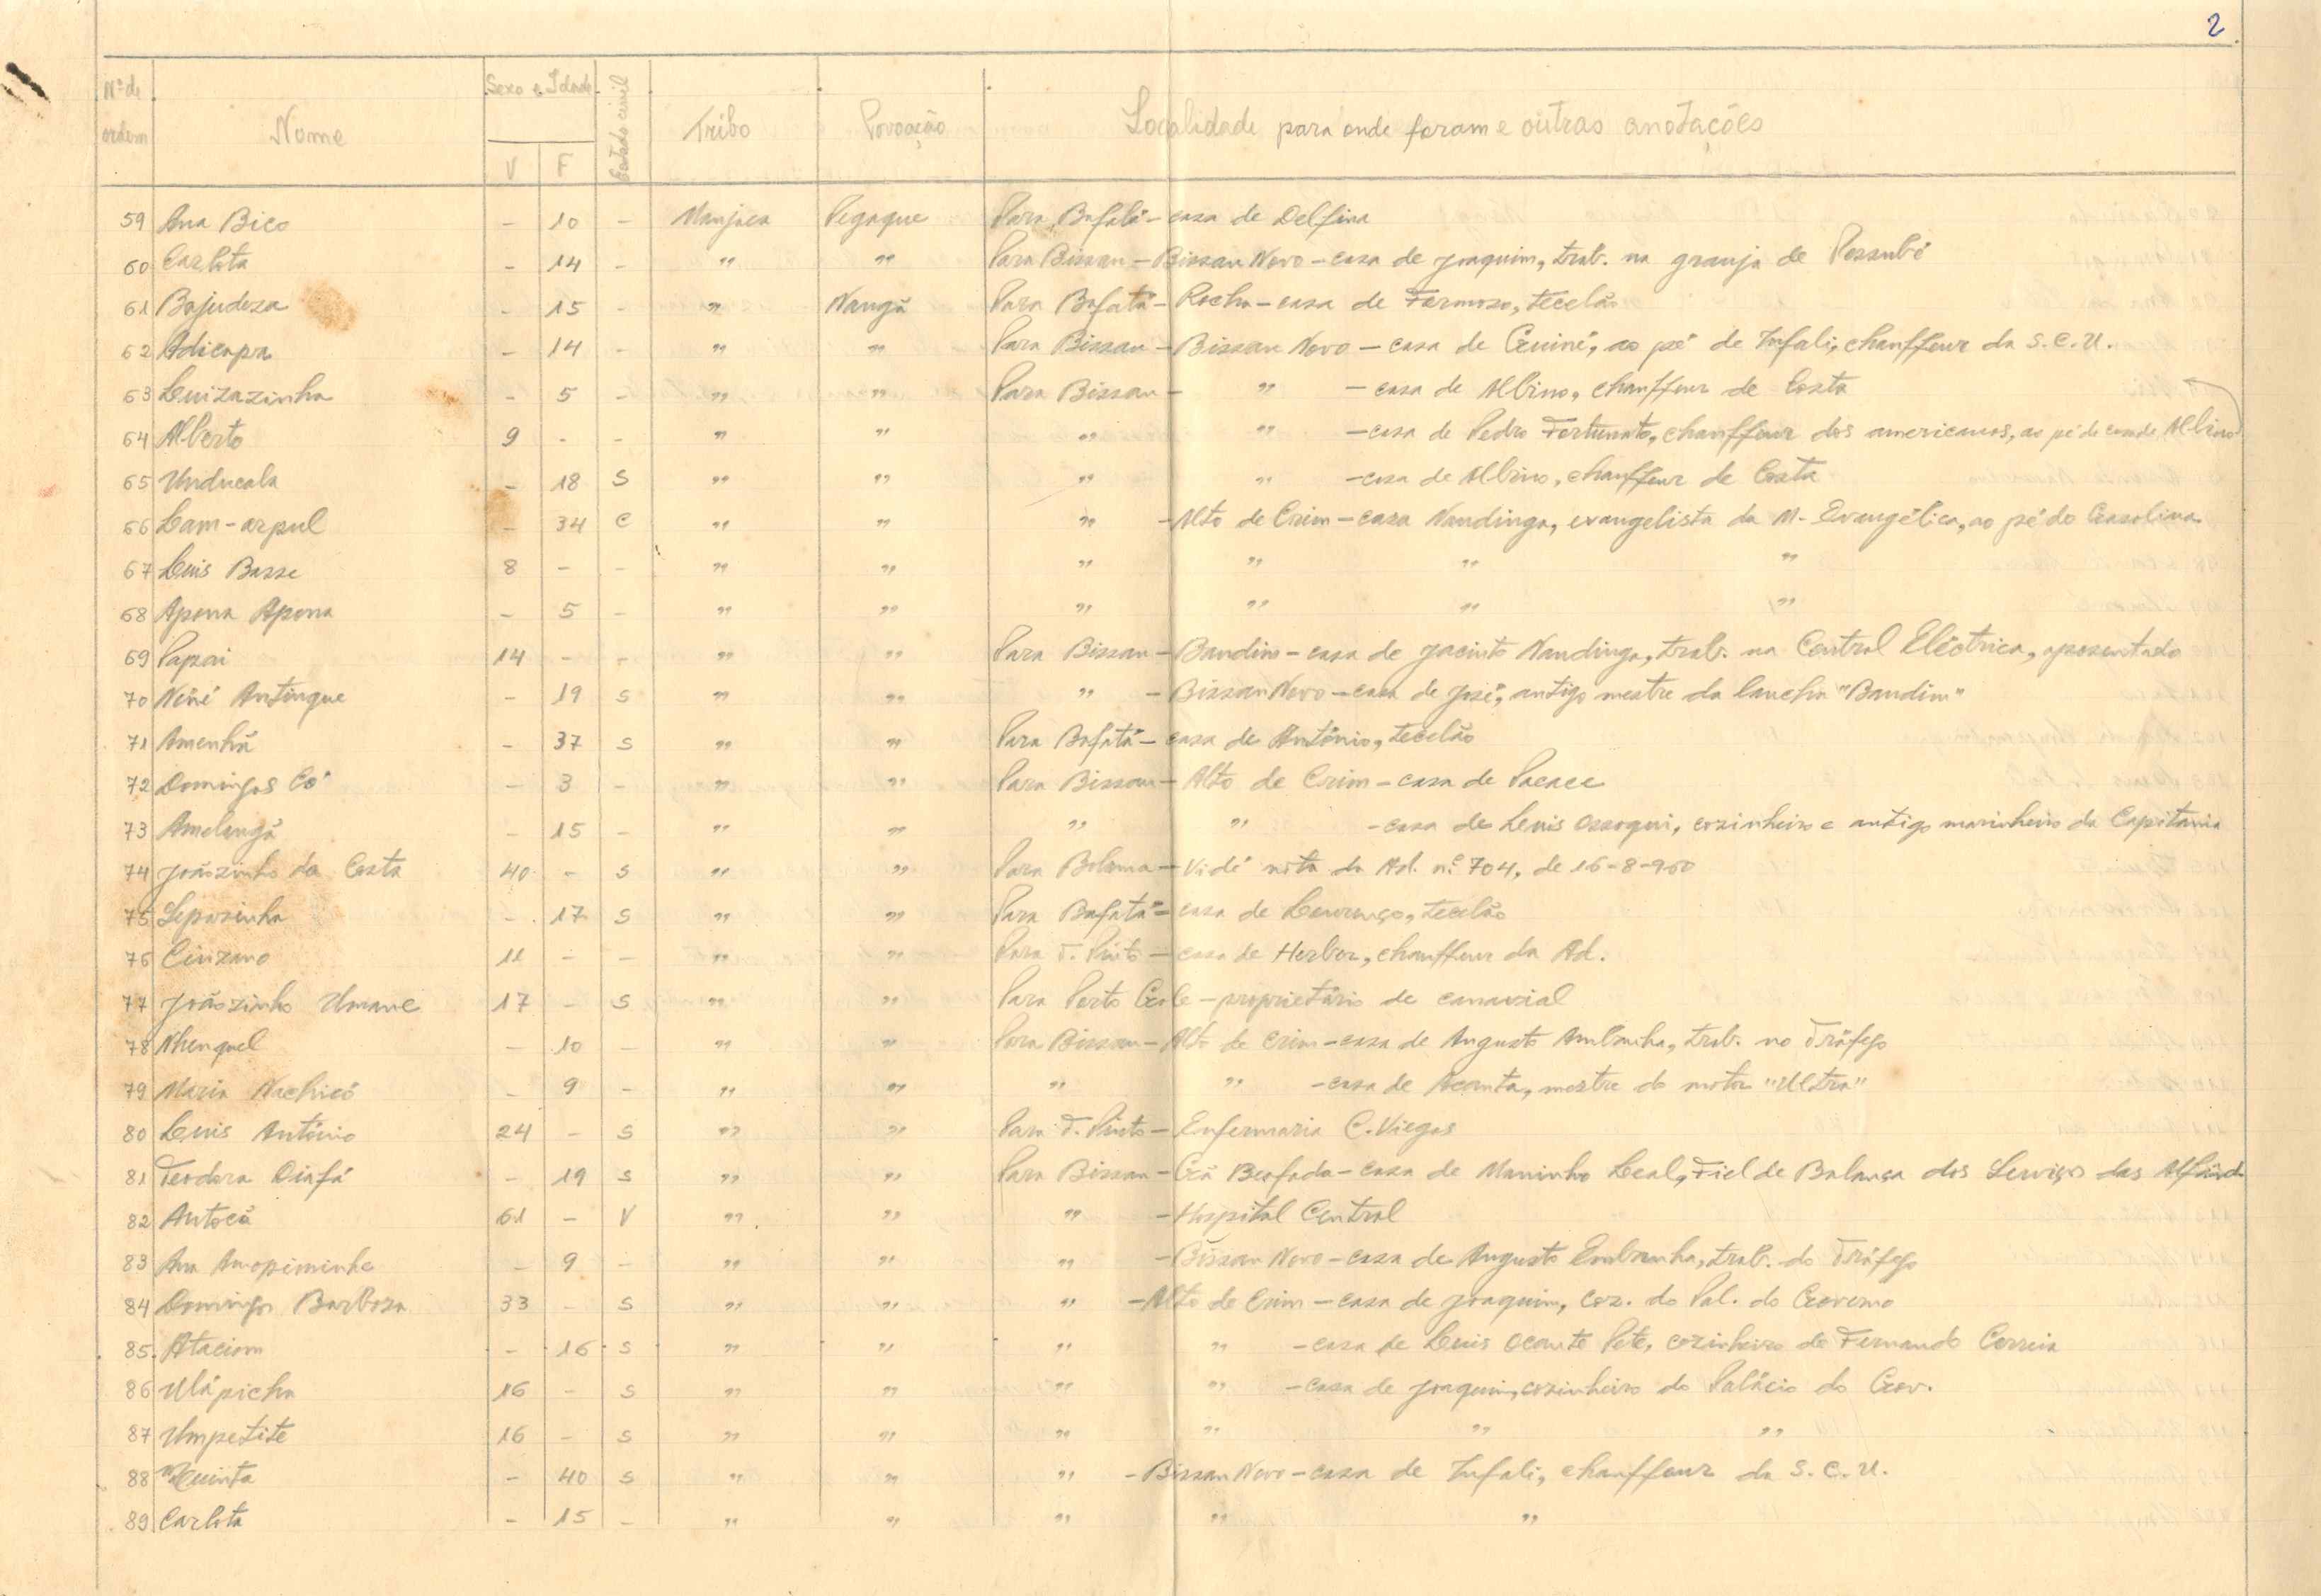 2
Nº de ordem Nome Sexo e Idade V F Estado civil Tribo Povoação Localidade para onde foram e outras anotações
59 Ana Bico - 10 - Manjaca Pegaque Para Bafatá - casa de Delfina
60 Carlota - 14 - " " Para Bissau - Bissau Novo - casa de Joaquim, trab. na granja de Pessubé
61 Bajudeza - 15 - " Nangã Para Bafatá - Rocha - casa de Formoso, tecelão
62 Adicapa - 14 - " " Para Bissau - Bissau Novo - casa de Guiné, ao pé de Infali, chauffeur da S.C.U.
63 Luizazinha - 5 - " " Para Bissau - " - casa de Albino, chauffeur de Costa
64 Alberto 9 - - " " " " - casa de Pedro Fortunato, chauffeur dos americanos, ao pé de casa de Albino
65 Unducala - 18 S " " " " - casa de Albino, chauffeur de Costa
66 Lam-arpul - 34 C " " " - Alto de Crim - casa Nandinga, evangelista da M. Evangélica, ao pé do Gasolina
67 Luis Basse 8 - - " " " " " "
68 Apena Apena - 5 - " " " " " "
69 Papai 14 - - " " Para Bissau - Bandim - casa de Jacinto Nandinga, trab. na Central Eléctrica, aposentado
70 Nené Antingue - 19 S " " " - Bissau Novo - casa de José, antigo mestre da lancha "Bandim"
71 Amenhã - 37 S " " Para Bafatá - casa de António, tecelão
72 Domingas Có - 3 - " " Para Bissau - Alto de Crim - casa de Pacace
73 Amelangã - 15 - " " " " - casa de Luis Ossoqui, cozinheiro e antigo marinheiro da Capitania
74 Joãozinho da Costa 40 - S " " Para Bolama - Vidé nota da Ad. nº 704, de 16-8-960
75 Seposinha - 17 S " " Para Bafatá - casa de Lourenço, tecelão
76 Cinzano 11 - - " " Para T. Pinto - casa de Herber, chauffeur da Ad.
77 Joãozinho Umane 17 - S " " Para Porto Gole - proprietário de canavial
78 Nhenquel - 10 - " " Para Bissau - Alto de Crim - casa de Augusto Ambanha, trab. no Tráfego
79 Maria Nachicó - 9 - " " " " - casa de Acanta, mestre do motor "Ultra"
80 Luis António 24 - S " " Para T. Pinto - Enfermaria C. Viegas
81 Teodora Diafá - 19 S " " Para Bissau - Crã Beafada - casa de Maninho Leal, Fiel de Balança dos Serviços das Alfând.
82 Antocã 61 - V " " " - Hospital Central
83 Ana Amopiminha - 9 - " " " - Bissau Novo - casa de Augusto Embranha, trab. do Tráfego
84 Domingos Barbosa 33 - S " " " - Alto de Crim - casa de Joaquim, coz. do Pal. do Governo
85 Ataciom - 16 S " " " " - casa de Luis Ocante Pete, cozinheiro de Fernando Correia
86 Ulápicha 16 - S " " " " - casa de Joaquim, cozinheiro do Palácio do Gov.
87 Umpetite 16 - S " " " " " "
88 Quinta - 40 S " " " - Bissau Novo - casa de Infali, chauffeur da S.C.U.
89 Carlota - 15 - " " " " "